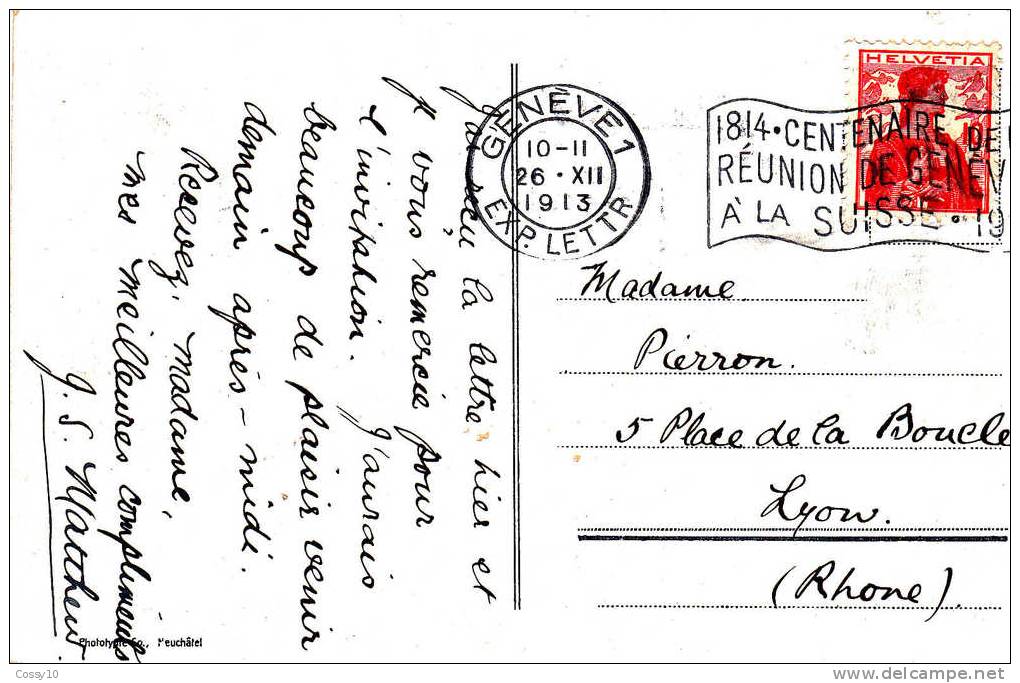 J'ai reçu la lettre hier et
je vous remercie pour
l'invitation. J'aurais
beaucoup de plaisir venir
demain après-midi.
Recevez, madame,
mes meilleures compliments
J. S. Matthew.
Phototypie Co., Neuchâtel
GENÈVE 1
10-11
26 • XII
1913
EXP. LETTR
HELVETIA
1814 • CENTENAIRE DE
RÉUNION DE GENÈV
À LA SUISSE • 19
Madame
Pierron.
5 Place de la Boucle
Lyon.
(Rhone).
Cossy10
www.delcampe.net